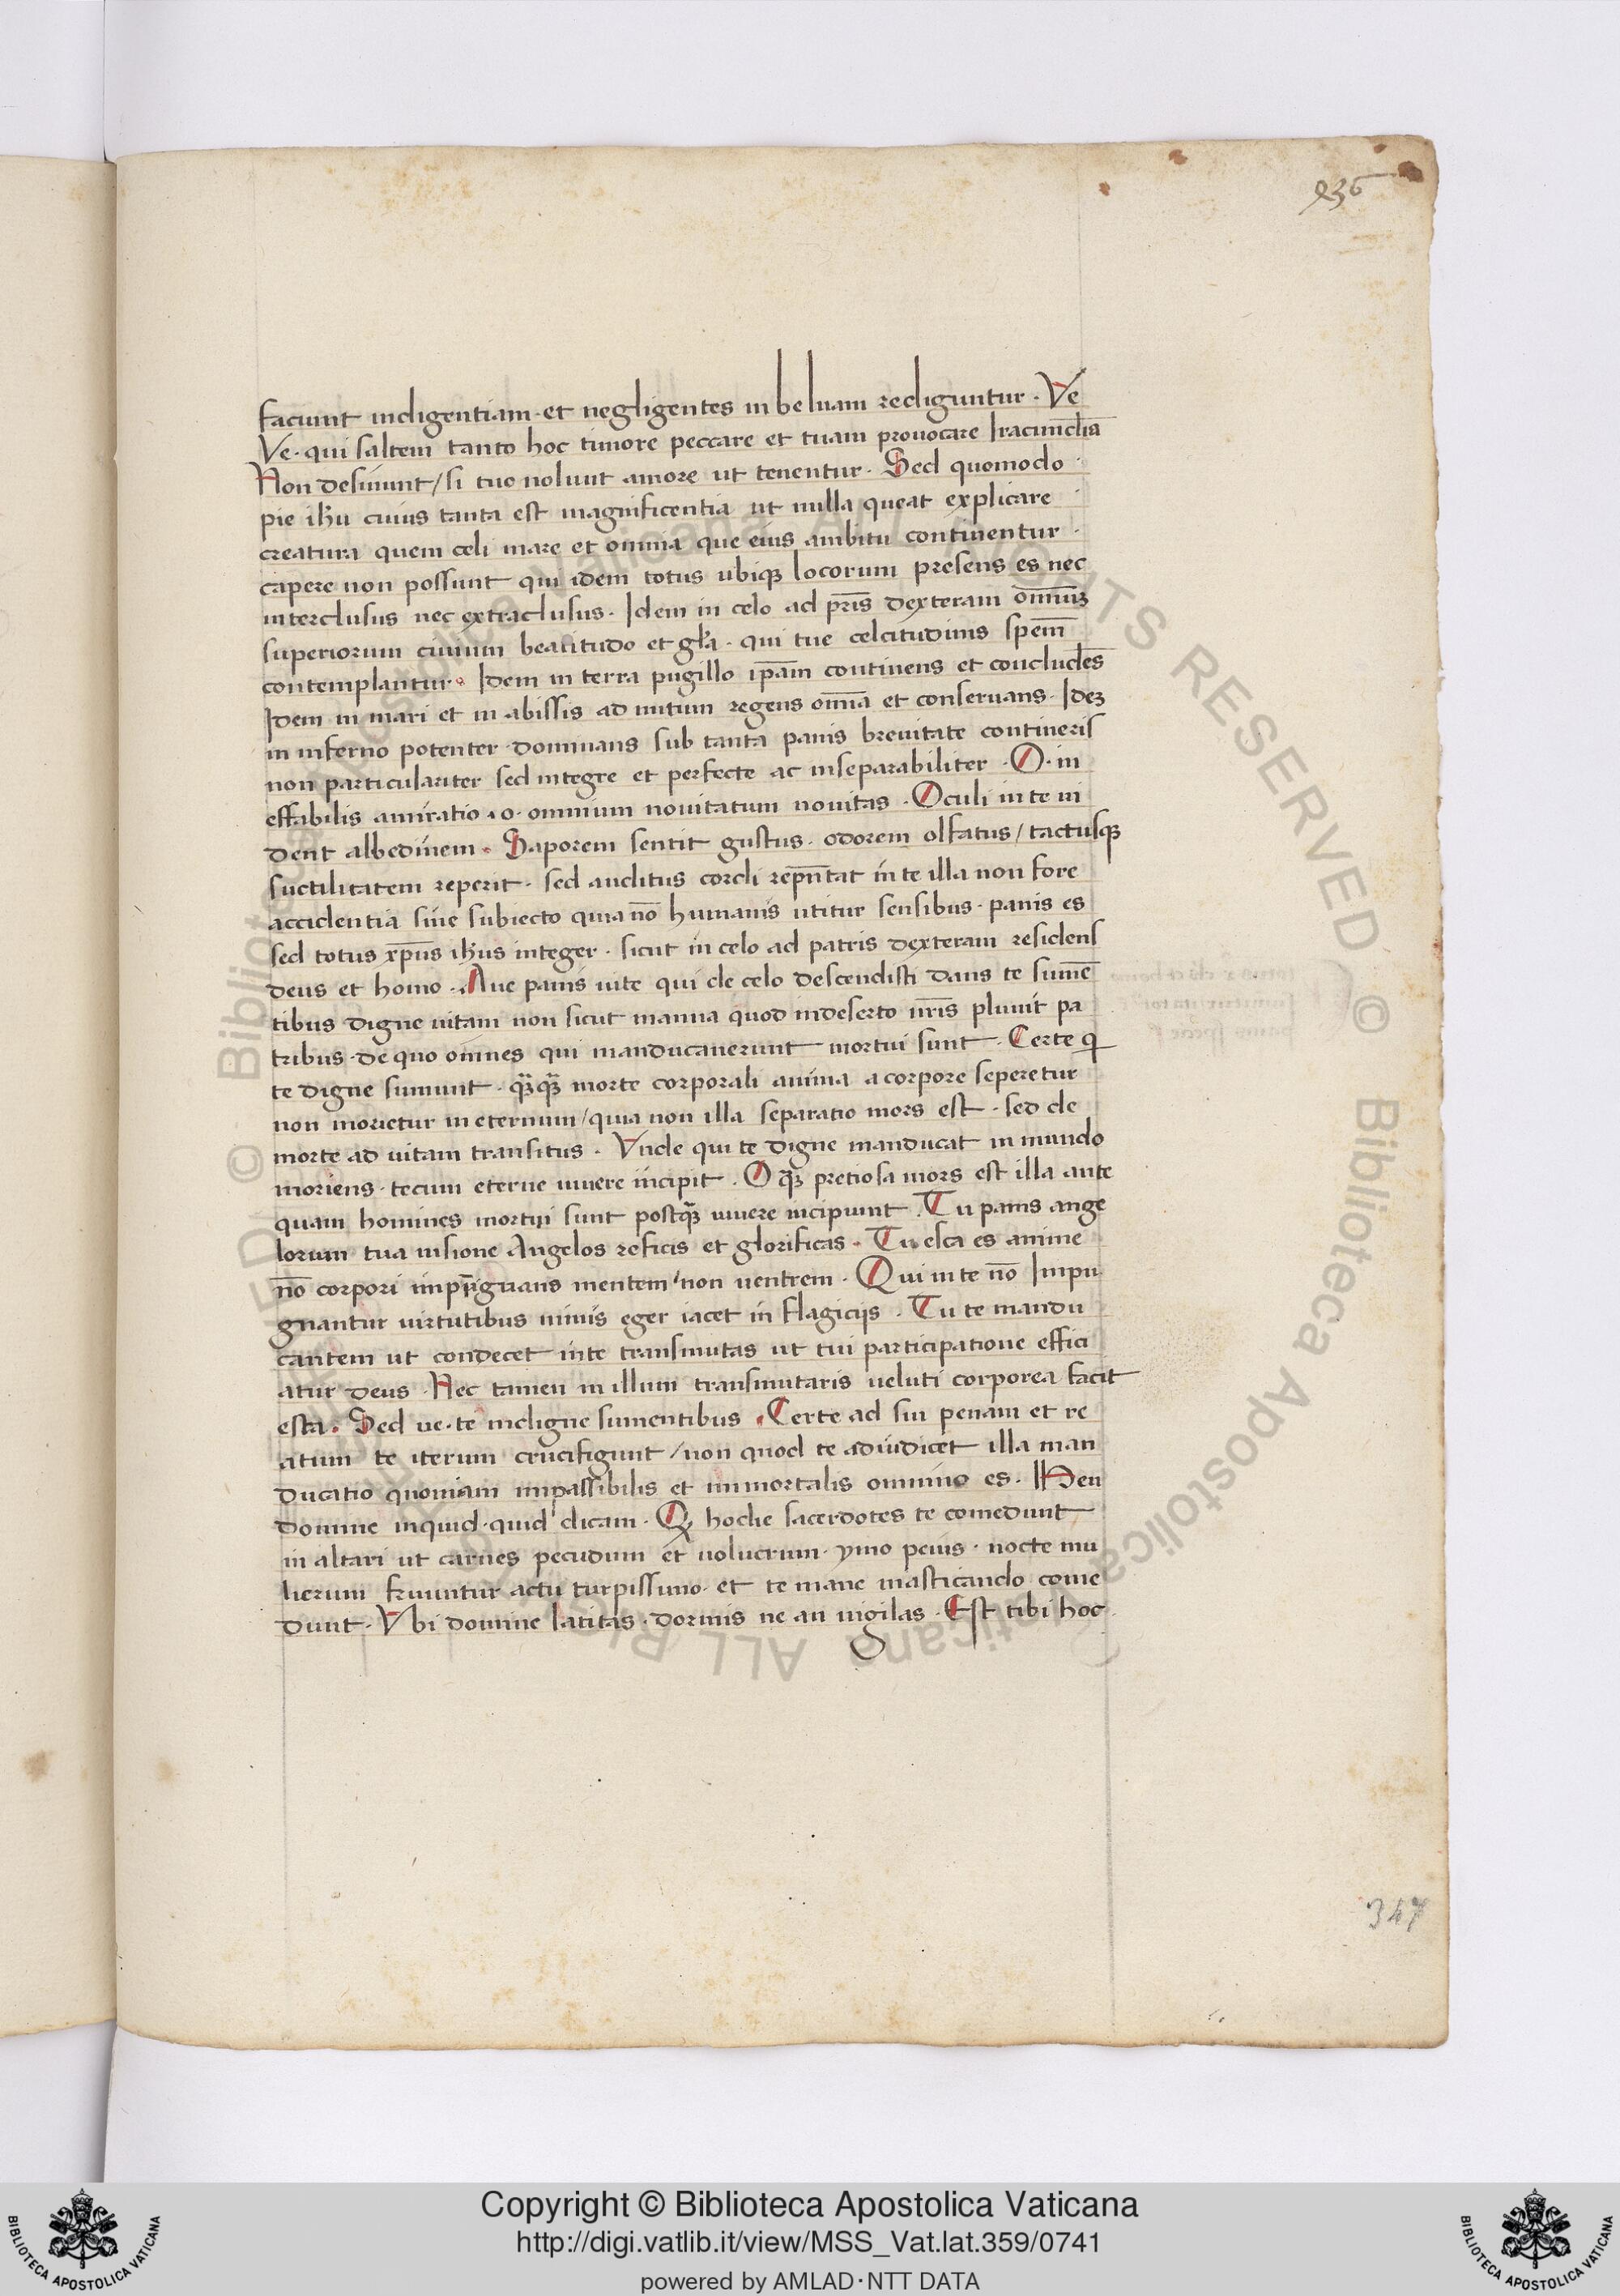 236
faciunt indigentiam · et negligentes in beluam rediguntur · Ve
Ve · qui saltem tanto hoc timore peccare et tuam prouocare Iracundiā
Non desinunt / si tuo nolunt amore ut tenentur · Sed quomodo
pie ihu cuius tanta est magnificentia ut nulla queat explicare
creatura quem celi mare et omnia que eius ambitu continentur ·
capere non possunt qui idem totus ubiqꝫ locorum presens es nec
interclusus nec extraclusus · Idem in celo ad pr̄is dexteram omniuꝫ
superiorum ciuium beatitudo et gla · qui tue celcitudinis spem̄
contemplantur · Idem in terra pugillo ip̄am continens et concludēs
Idem in mari et in abissis ad nutum regens om̄ia et conseruans · Ideꝫ
in inferno potenter dominans sub tanta panis breuitate contineris
non particulariter sed integre et perfecte ac inseparabiliter · O · in
effabilis amiratio · o · omnium nouitatum nouitas · Oculi in te ui
dent albedinem · Saporem sentit gustus · odorem olfatus / tactusqꝫ
suctilitatem reperit · sed auditus cordi repn̄tat in te illa non fore
accidentia sine subiecto quia nō humanis utitur sensibus · panis es
sed totus xp̄us ihus integer · sicut in celo ad patris dexteram residens
deus et homo · Aue panis uite qui de celo descendisti dans te sumē
tibus digne uitam non sicut manna quod indeserto nr̄is pluuit pa
tribus · de quo omnes qui manducauerunt mortui sunt · Certe qi
te digne sumunt · qꝫqꝫ morte corporali anima a corpore seperetur
non morietur in eternum / quia non illa separatio mors est · sed de
morte ad uitam transitus · Vnde qui te digne manducat in mundo
moriens · tecum eterne uiuere incipit · O qꝫ pretiosa mors est illa ante
quam homines mortui sunt postqꝫ uiuere incipiunt · Tu panis ange
lorum tua uisione Angelos reficis et glorificas · Tu esca es anime
nō corpori impinguans mentem / non uentrem · Qui in te nō Impu
gnantur uirtutibus nimis eger iacet in flagicijs · Tu te mandu
cantem ut condecet inte transmutas ut tui participatione effici
atur deus · Nec tamen in illum transmutaris ueluti corporea facit
esca · Sed ue · te indigne sumentibus · Certe ad sui penam et re
atum te iterum crucifigunt / non quod te adiudicet illa man
ducatio quoniam impassibilis et inmortalis omnino es · Heu
domine inquid · quid dicam · Q hodie sacerdotes te comedunt
in altari ut carnes pecudum et uolucrum · ymo peius · nocte mu
lierum fruuntur actu turpissimo · et te mane masticando come
dunt · Vbi domine latitas · dormis ne an uigilas · Est tibi hoc
347
Copyright © Biblioteca Apostolica Vaticana
http://digi.vatlib.it/view/MSS_Vat.lat.359/0741
powered by AMLAD·NTT DATA